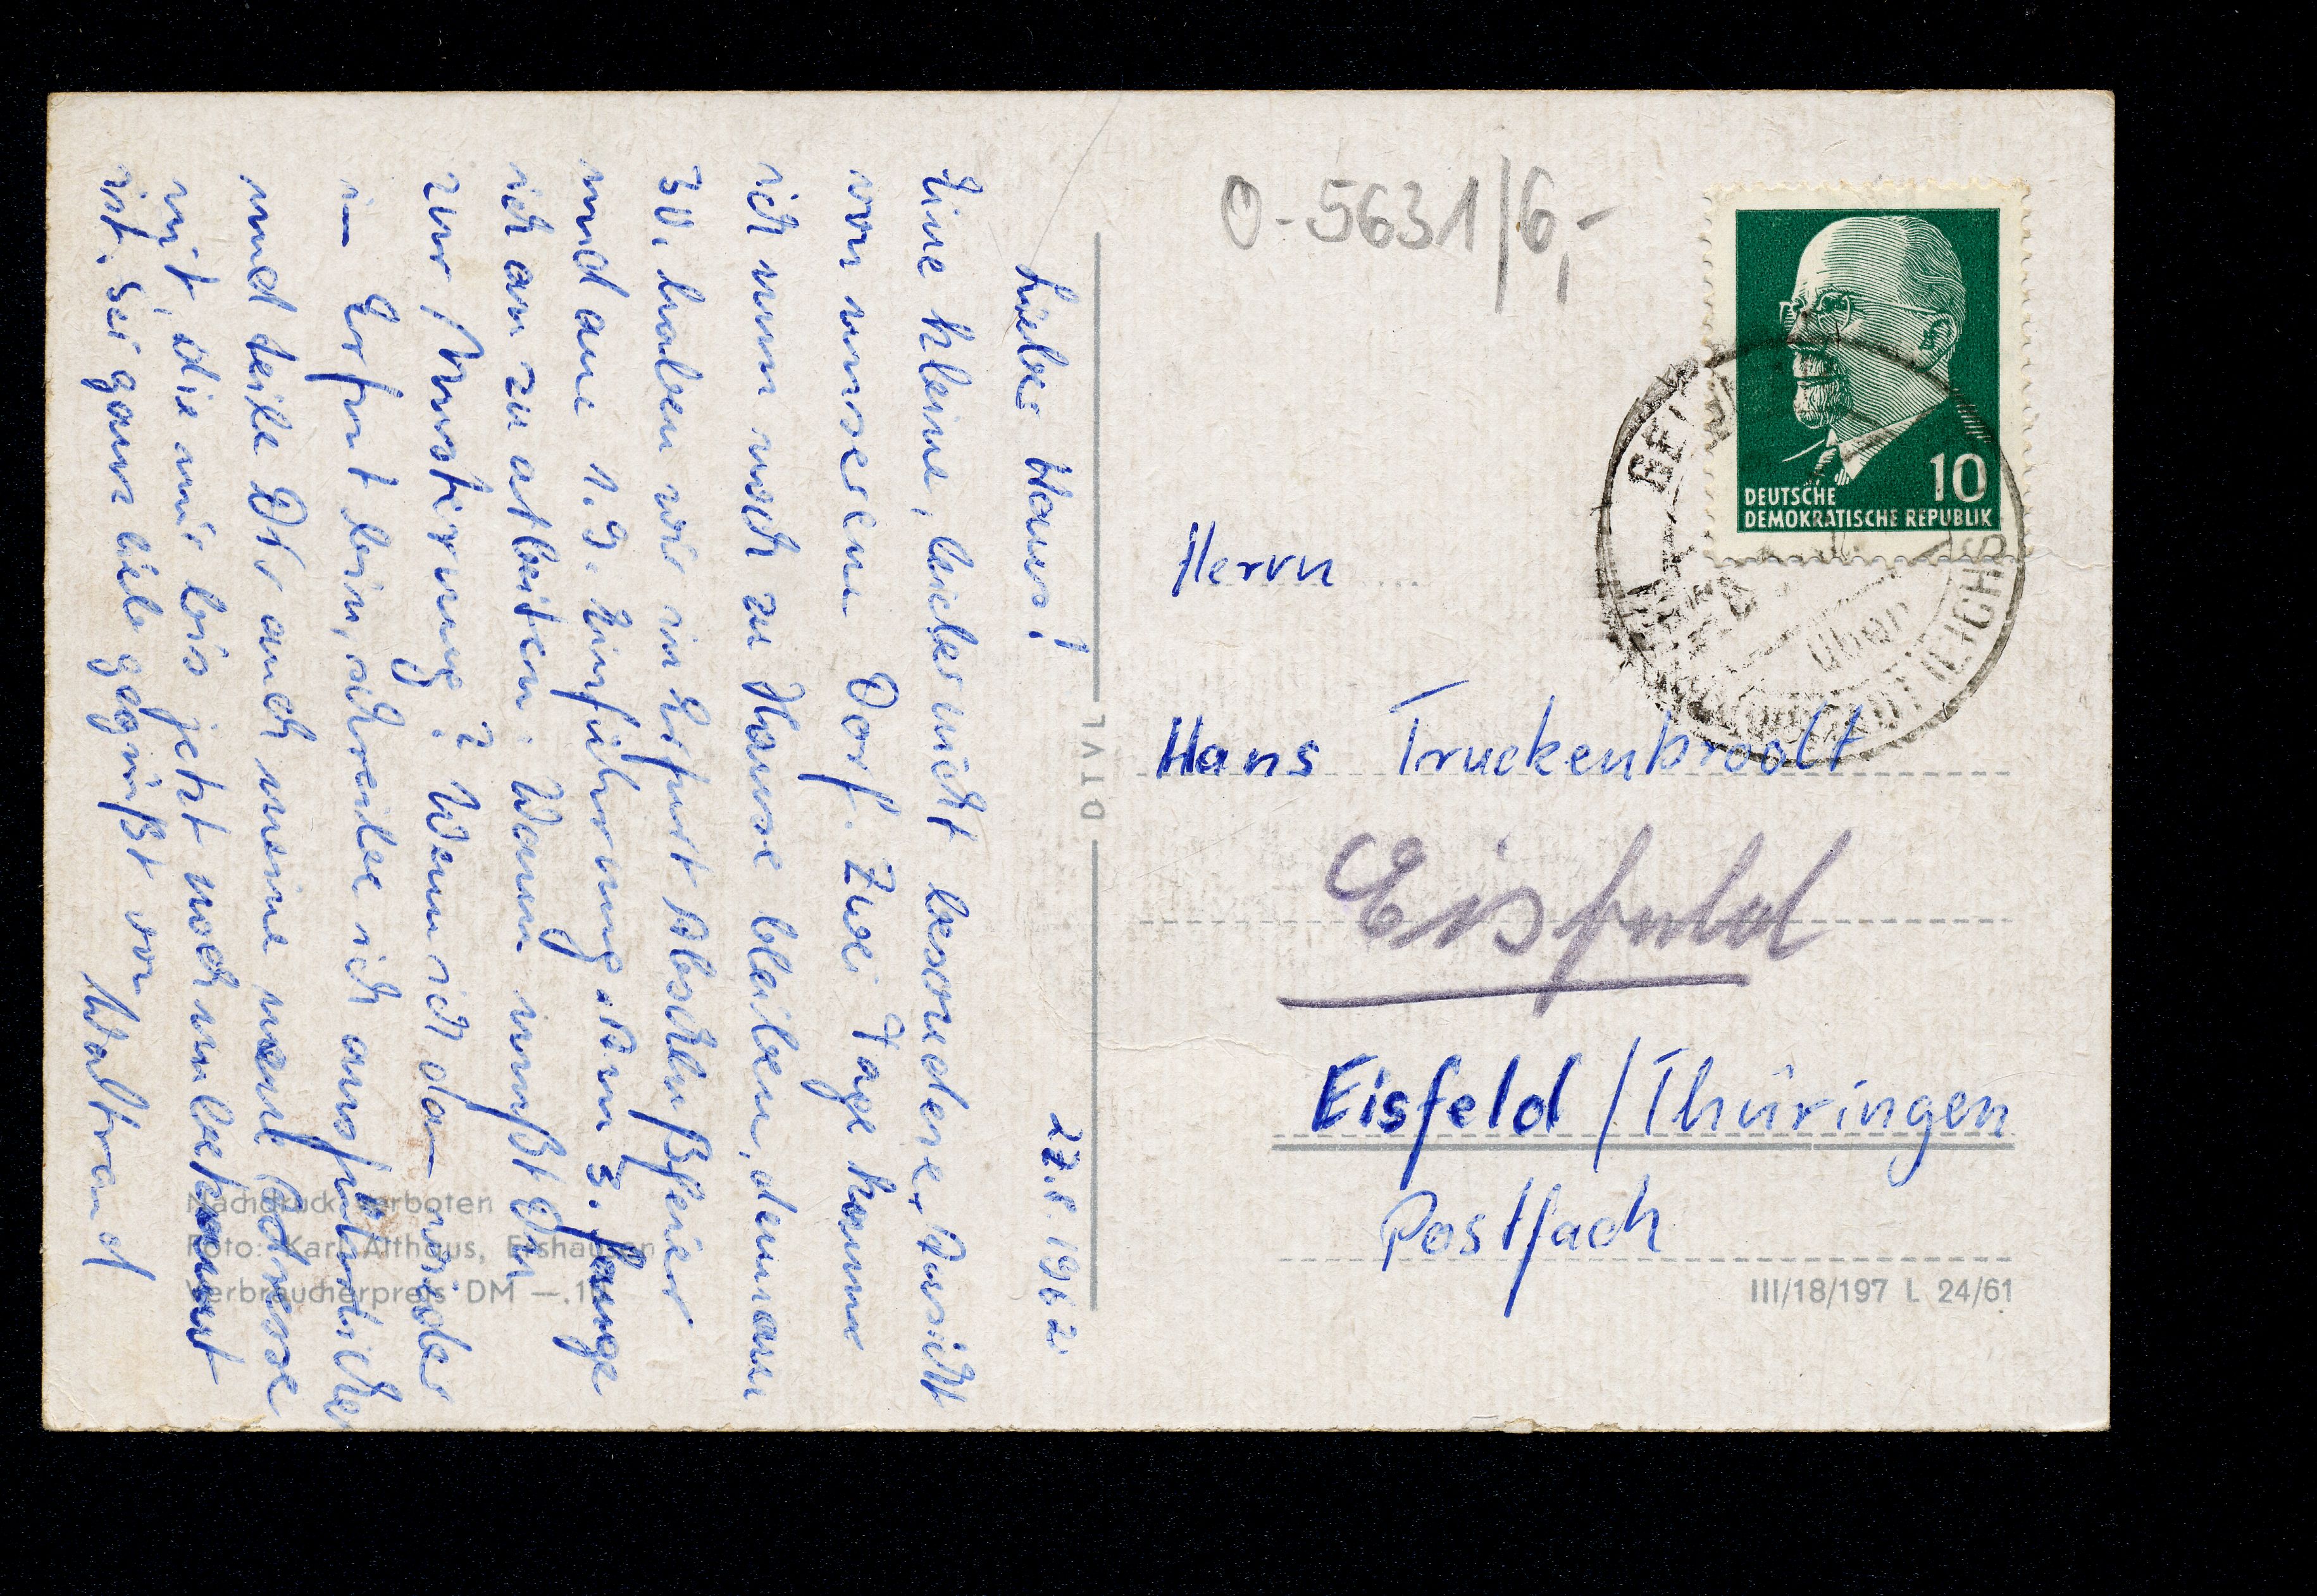 27.8.1962.
Lieber Hans!
Eine kleine, leider nicht besondere Ansicht
von unserem Dorf. Zwei Tage kann
ich nun noch zu Hause bleiben, denn am
30. haben wir in Erfurt Abschlußfeier
und am 1.9. Einführung. Am 3. fange
ich an zu arbeiten. Wann mußt Du
zur Musterung? Wenn ich dann wieder
in Erfurt bin, schreibe ich ausführlicher
und teile Dir auch meine neue Adresse
mit, die mir bis jetzt noch unbekannt
ist. Sei ganz lieb gegrüßt von
Waltraud
Nachdruck verboten
Foto: Karl Althaus, Ershausen
Verbraucherpreis DM —.1
O-5631/6,-
DEUTSCHE
DEMOKRATISCHE REPUBLIK
10
über
Herrn
Hans Truckenbrodt
Eisfeld
Eisfeld / Thüringen
Postfach
III/18/197 L 24/61